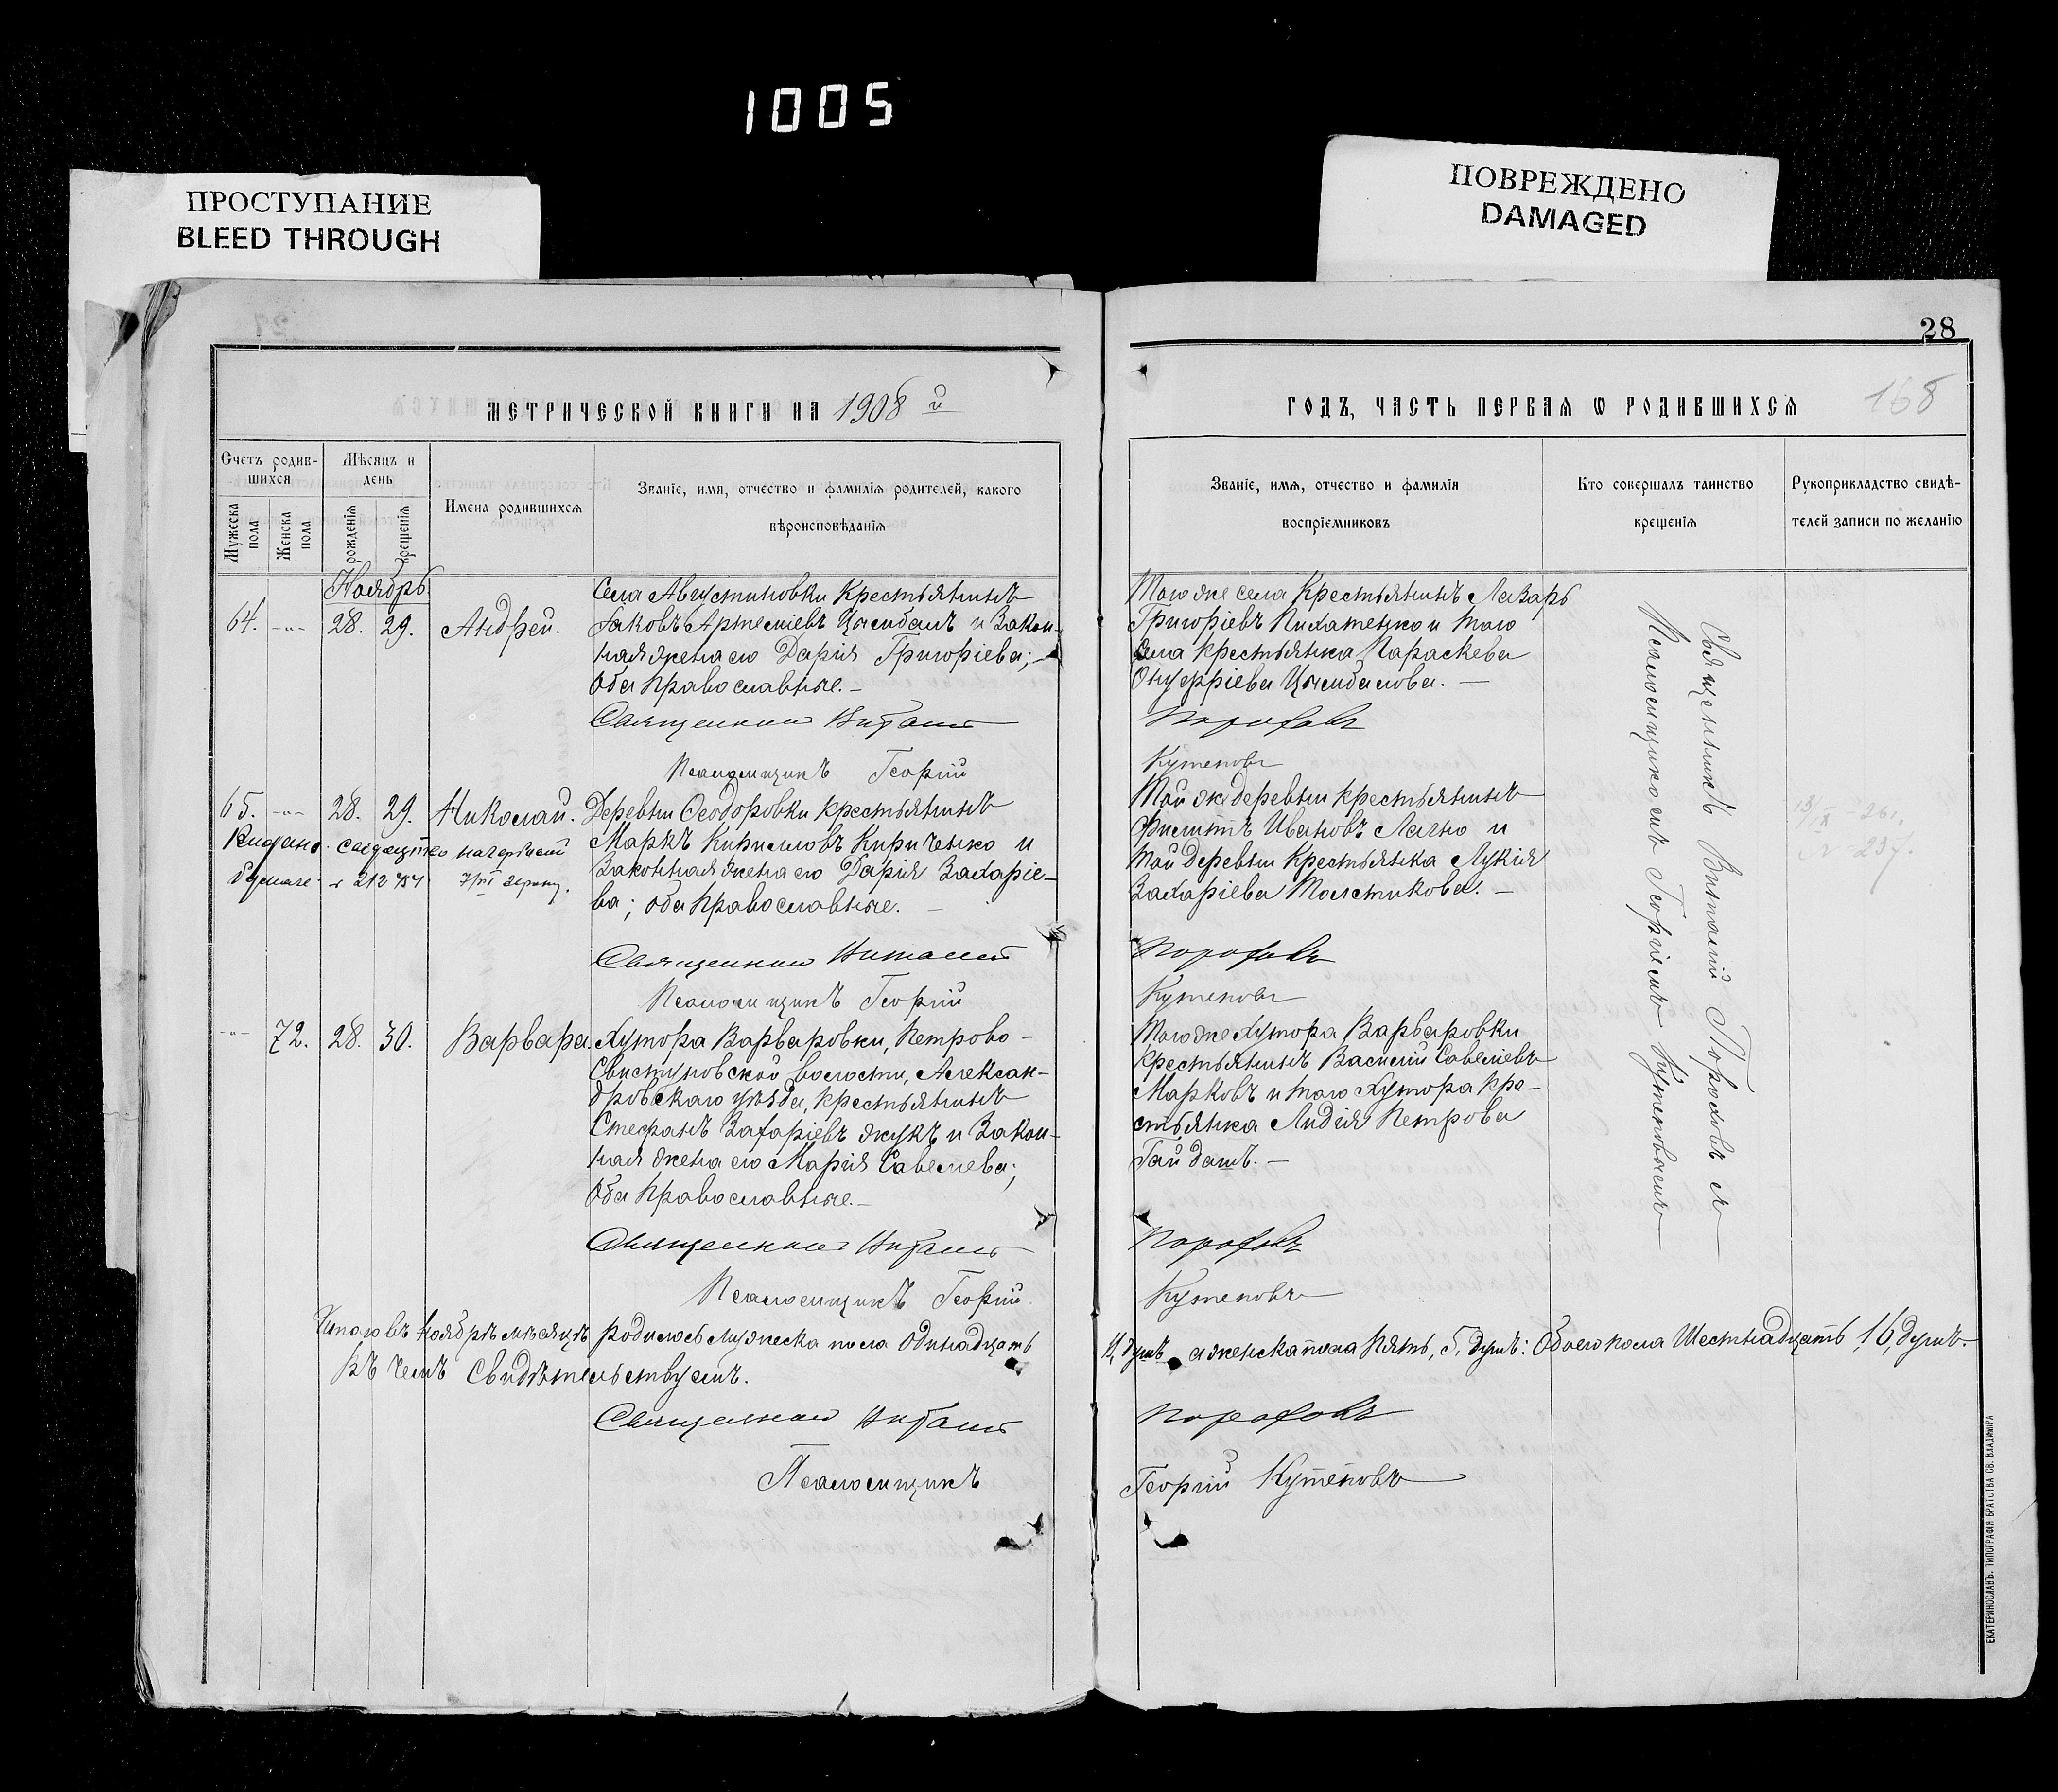 1005
ПРОСТУПАНИЕ
BLEED THROUGH
ПОВРЕЖДЕНО
DAMAGED
28
168
МЕТРИЧЕСКОЙ КНИГИ НА 1908 й
Счетъ родив-
шихся
Мѣсяцъ и
день
Мужеска
пола
Женска
пола
рожденія
крещенія
Имена родившихся
Званіе, имя, отчество и фамилія родителей, какого
вѣроисповѣданія
Ноябрь.
64. -"- 28. 29. Андрей.
Села Августиновки крестьянинъ
Іаковъ Артеміевъ Цымбалъ и закон-
ная жена его Дарія Григоріева;
оба православные.
Священникъ Виталій
Псаломщикъ Георгій
65. -"- 28. 29. Николай.
Выдано
бумаге
Деревни Ѳеодоровки крестьянинъ
Маркъ Кирилловъ Кириченко и
законная жена его Дарія Захаріе-
ва; оба православные.
Священникъ Виталій
Псаломщикъ Георгій
-"- 72. 28. 30. Варвара.
Хутора Варваровки, Петрово-
Свистуновской волости, Алексан-
дровскаго уѣзда, крестьянинъ
Стефанъ Захаріевъ Жукъ и закон-
ная жена его Марія Савелиева;
оба православные.
Священникъ Виталій
Псаломщикъ Георгій
Итого въ Ноябрѣ мѣсяцѣ родилось мужеска пола одинадцать
Въ чемъ свидѣтельствуемъ.
Священникъ Виталій
Псаломщикъ
ГОДЪ, ЧАСТЬ ПЕРВАЯ Ѡ РОДИВШИХСЯ
Званіе, имя, отчество и фамилія
воспріемниковъ
Кто совершалъ таинство
крещенія
Рукоприкладство свидѣ-
телей записи по желанію
Того же села крестьянинъ Лазарь
Григоріевъ и того
села крестьянка Параскева
Онуфріева Цымбалова.
Пороховъ
Кутеповъ
Той же деревни крестьянинъ
Филиппъ Ивановъ Лячно и
той деревни крестьянка Лукія
Захаріева Толстикова.
Пороховъ
Кутеповъ
Того же хутора Варваровки
крестьянинъ Василій Савелиевъ
Марковъ и того хутора кре-
стьянка Лидія Петрова
Гайдашъ.
Пороховъ
Кутеповъ
11, душъ а женска пола пять, 5, душъ: обоего пола шестнадцать, 16, душъ.
Пороховъ
Георгій Кутеповъ
Священникъ Виталій Пороховъ съ
Псаломщикомъ Георгіемъ Кутеповымъ
ЕКАТЕРИНОСЛАВЪ. ТИПОГРАФІЯ БРАТСТВА СВ. ВЛАДИМІРА